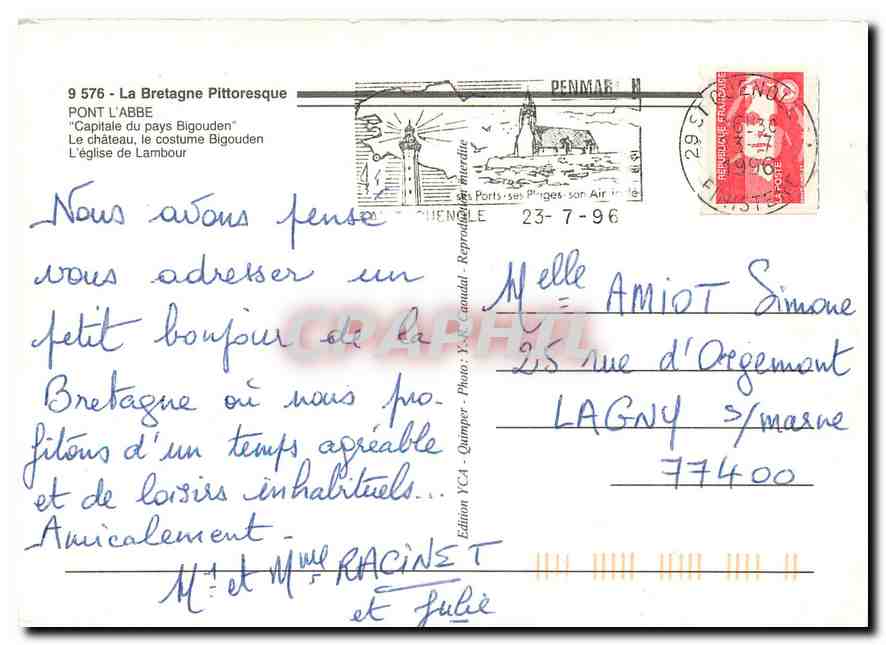 9 576 - La Bretagne Pittoresque
PONT L'ABBE
"Capitale du pays Bigouden"
Le château, le costume Bigouden
L'église de Lambour
PENMAR H
ses Ports - ses Plages - son Air iodé
GUENOLE 23-7-96
29 ST GUENOLE
1996
FINISTERE
REPUBLIQUE FRANÇAISE
LA POSTE
Nous avons pensé
vous adresser un
petit bonjour de la
Bretagne où nous pro-
fitons d'un temps agréable
et de loisirs inhabituels...
Amicalement.
Mr et Mme RACINET
et Julie
Edition YCA - Quimper - Photo : Y.-R. Caoudal - Reproduction interdite
Melle AMIOT Simone
25 rue d'Orgemont
LAGNY s/marne
77400
CPAPHIL